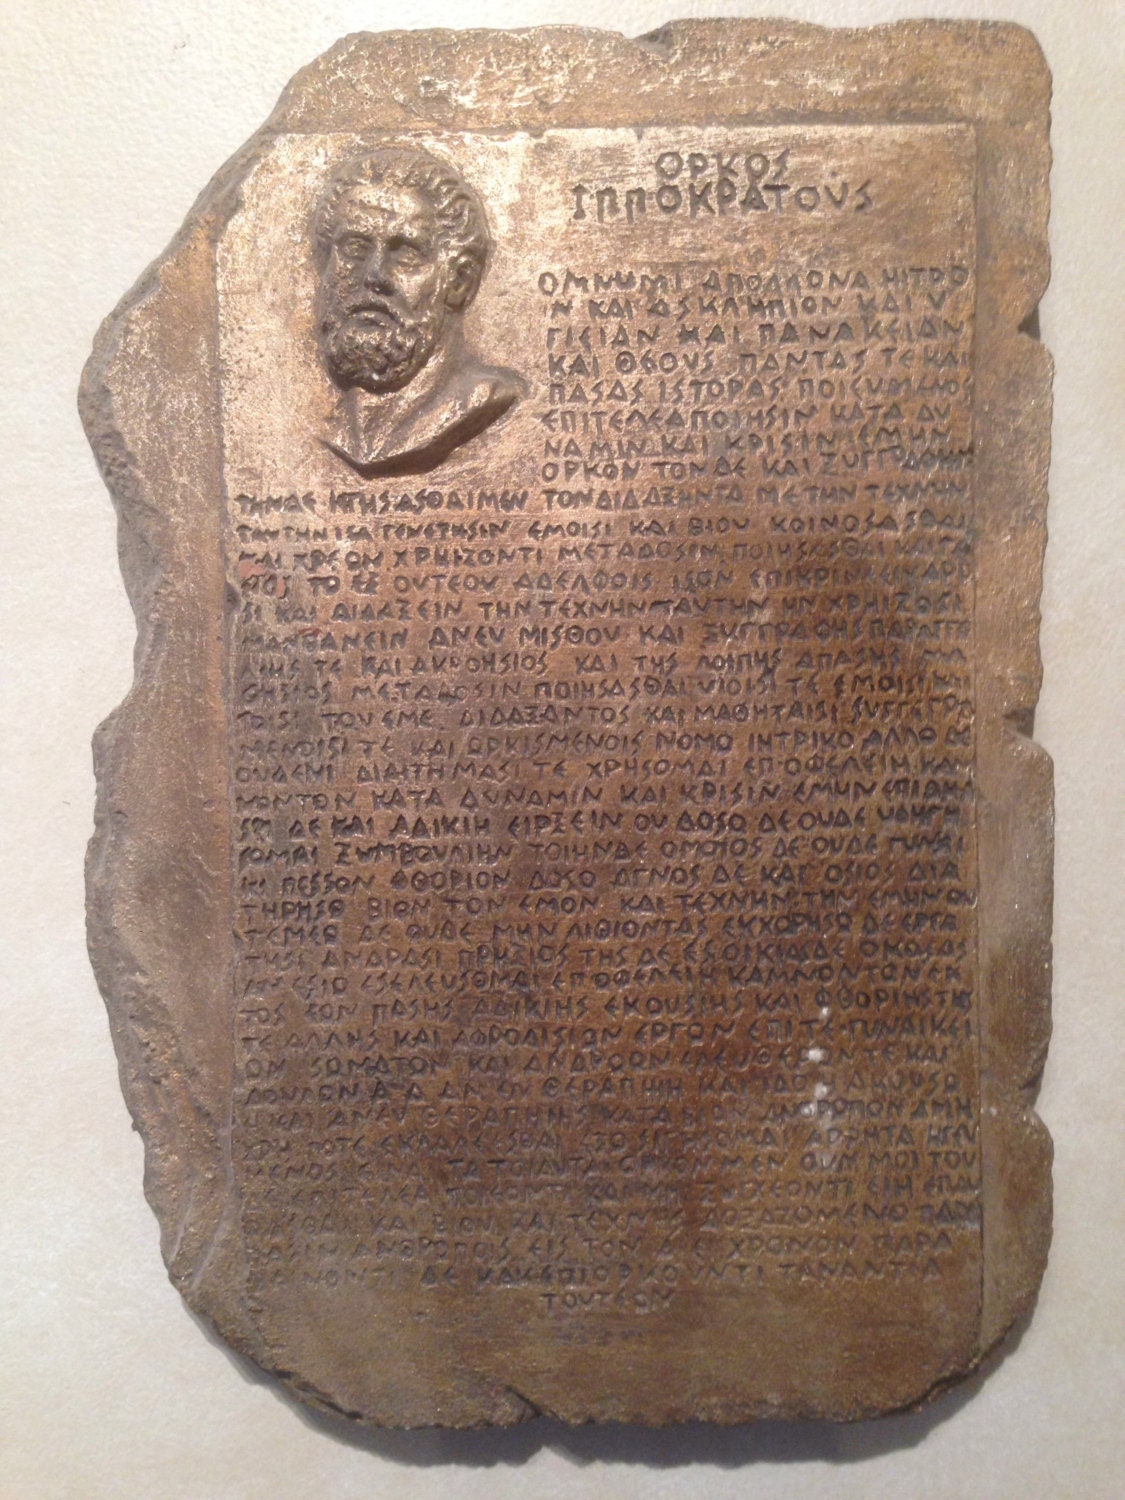 ΟΡΚΟΣ
ΙΠΠΟΚΡΑΤΟΥΣ
ΟΜΝΥΜΙ ΑΠΟΛΚΟΝΑ ΗΙΤΡΟ
Ν ΚΑΙ ΑΣΚΛΗΠΙΟΝ ΚΑΙ Υ
ΓΙΕΙΑΝ ΚΑΙ ΠΑΝΑΚΕΙΑΝ
ΚΑΙ ΘΕΟΥΣ ΠΑΝΤΑΣ ΤΕ ΚΑΙ
ΠΑΣΑΣ ΙΣΤΟΡΑΣ ΠΟΙΕΥΜΕΝΟΣ
ΕΠΙΤΕΛΕΑΠΟΙΗΣΙΝ ΚΑΤΑ ΔΥ
ΝΑΜΙΝ ΚΑΙ ΚΡΙΣΙΝ ΕΜΗΝ
ΟΡΚΟΝ ΤΟΝΔΕ ΚΑΙ
ΜΕΝ ΤΟΝΔΙΔΑΞΗΝΤΑ ΜΕ ΤΗΝ ΤΕΧΝΗΝ
ΤΑΥΤΗΝ ΙΣΑ ΓΕΝΕΤΗΣΙΝ ΕΜΟΙΣΙ ΚΑΙ ΒΙΟΥ ΚΟΙΝΟΣΑΣΘΑΙ
ΚΑΙ ΧΡΕΟΝ ΧΡΗΙΖΟΝΤΙ ΜΕΤΑΔΟΣΙΝ ΠΟΙΗΣΑΣΘΑΙ
ΤΟ ΕΞ ΟΥΤΕΟΥ ΑΔΕΛΦΟΙΣ ΙΣΟΝ
ΣΙ ΚΑΙ ΔΙΔΑΞΕΙΝ ΤΗΝ ΤΕΧΝΗΝ ΤΑΥΤΗΝ ΗΝ ΧΡΗΙΖΟΣΙ
ΜΑΝΘΑΝΕΙΝ ΑΝΕΥ ΜΙΣΘΟΥ ΚΑΙ ΞΥΓΓΡΑΦΗΣ ΠΑΡΑΓΓΕ
ΛΙΗΣ ΤΕ ΚΑΙ ΑΚΡΟΗΣΙΟΣ ΚΑΙ ΤΗΣ ΛΟΙΠΗΣ ΑΠΑΣΗΣ ΜΑ
ΘΗΣΙΟΣ ΜΕΤΑΔΟΣΙΝ ΠΟΙΗΣΑΣΘΑΙ ΥΙΟΙΣΙ ΤΕ ΕΜΟΙΣΙ ΚΑΙ
ΤΟΙΣΙ ΤΟΥ ΕΜΕ ΔΙΔΑΞΑΝΤΟΣ ΚΑΙ ΜΑΘΗΤΑΙΣΙ ΣΥΓΓΕΓΡΑ
ΜΕΝΟΙΣΙ ΤΕ ΚΑΙ ΩΡΚΙΣΜΕΝΟΙΣ ΝΟΜΩ ΙΗΤΡΙΚΟ ΑΛΛΟ ΔΕ
ΟΥΔΕΝΙ ΔΙΑΙΤΗΜΑΣΙ ΤΕ ΧΡΗΣΟΜΑΙ ΕΠ ΟΦΕΛΕΙΗ ΚΑΜ
ΝΟΝΤΟΝ ΚΑΤΑ ΔΥΝΑΜΙΝ ΚΑΙ ΚΡΙΣΙΝ ΕΜΗΝ
ΔΕ ΚΑΙ ΑΔΙΚΙΗ ΕΙΡΞΕΙΝ ΟΥ ΔΟΣΩ ΔΕ ΟΥΔΕ ΥΦΗΓΗ
ΣΟΜΑΙ ΞΥΜΒΟΥΛΙΗΝ ΤΟΙΗΝΔΕ ΟΜΟΙΟΣ ΔΕ ΟΥΔΕ ΓΥΝΑΙ
ΚΙ ΠΕΣΣΟΝ ΦΘΟΡΙΟΝ ΔΟΣΟ ΑΓΝΟΣ ΔΕ ΚΑΙ ΟΣΙΟΣ ΔΙΑ
ΤΗΡΗΣΟ ΒΙΟΝ ΤΟΝ ΕΜΟΝ ΚΑΙ ΤΕΧΝΗΝ ΤΗΝ ΕΜΗΝ ΟΥ
ΤΕΜΕΩ ΔΕ ΟΥΔΕ ΜΗΝ ΛΙΘΙΟΝΤΑΣ ΕΚΧΟΡΗΣΩ ΔΕ ΕΡΓΑ
ΤΗΣΙ ΑΝΔΡΑΣΙ ΠΡΗΞΙΟΣ ΤΗΣ ΔΕ ΕΣ ΟΙΚΙΑΣ ΔΕ ΟΚΟΣΑΣ
ΕΣΕΛΕΥΣΟΜΑΙ ΕΠ ΟΦΕΛΕΙΗ ΚΑΜΝΟΝΤΟΝ ΕΚ
ΤΟΣ ΕΟΝ ΠΑΣΗΣ ΑΔΙΚΙΗΣ ΕΚΟΥΣΙΗΣ ΚΑΙ ΦΘΟΡΙΗΣ ΤΗΣ
ΤΕ ΑΛΛΗΣ ΚΑΙ ΑΦΡΟΔΙΣΙΩΝ ΕΡΓΩΝ ΕΠΙ ΤΕ ΓΥΝΑΙΚΕΙ
ΩΝ ΣΩΜΑΤΩΝ ΚΑΙ ΑΝΔΡΟΩΝ ΕΛΕΥΘΕΡΩΝ ΤΕ ΚΑΙ
ΔΟΥΛΩΝ ΑΝ ΕΝ ΘΕΡΑΠΗΗ ΚΑΙ ΑΚΟΥΣΩ
ΚΑΙ ΑΝΕΥ ΘΕΡΑΠΗΗΣ ΚΑΤΑ ΒΙΟΝ ΑΝΘΡΟΠΟΝ Α ΜΗ
ΧΡΗ ΠΟΤΕ ΕΚΛΑΛΕΕΣΘΑΙ ΕΞΟ ΣΙΓΗΣΟΜΑΙ ΑΡΡΗΤΑ ΗΓΕΥ
ΜΕΝΟΣ ΕΙΝΑΙ ΤΑ ΤΟΙΑΥΤΑ ΟΡΚΟΝ ΜΕΝ ΟΥΝ ΜΟΙ ΤΟΝ
ΔΕ ΕΠΙΤΕΛΕΑ ΠΟΙΕΟΝΤΙ ΚΑΙ ΜΗ ΞΥΓΧΕΟΝΤΙ ΕΙΗ ΕΠΑΥ
ΚΑΙ ΒΙΟΥ ΚΑΙ ΤΕΧΝΗΣ ΔΟΞΑΖΟΜΕΝΟ ΠΑΡΑ
ΠΑΣΙΝ ΑΝΘΡΟΠΟΙΣ ΕΙΣ ΤΟΝ ΑΕΙ ΧΡΟΝΟΝ ΠΑΡΑ
ΒΑΙΝΟΝΤΙ ΔΕ ΚΑΚΕΠΙΟΡΚΟΥΝΤΙ ΤΑΝΑΝΤΙΑ
ΤΟΥΤΕΟΝ